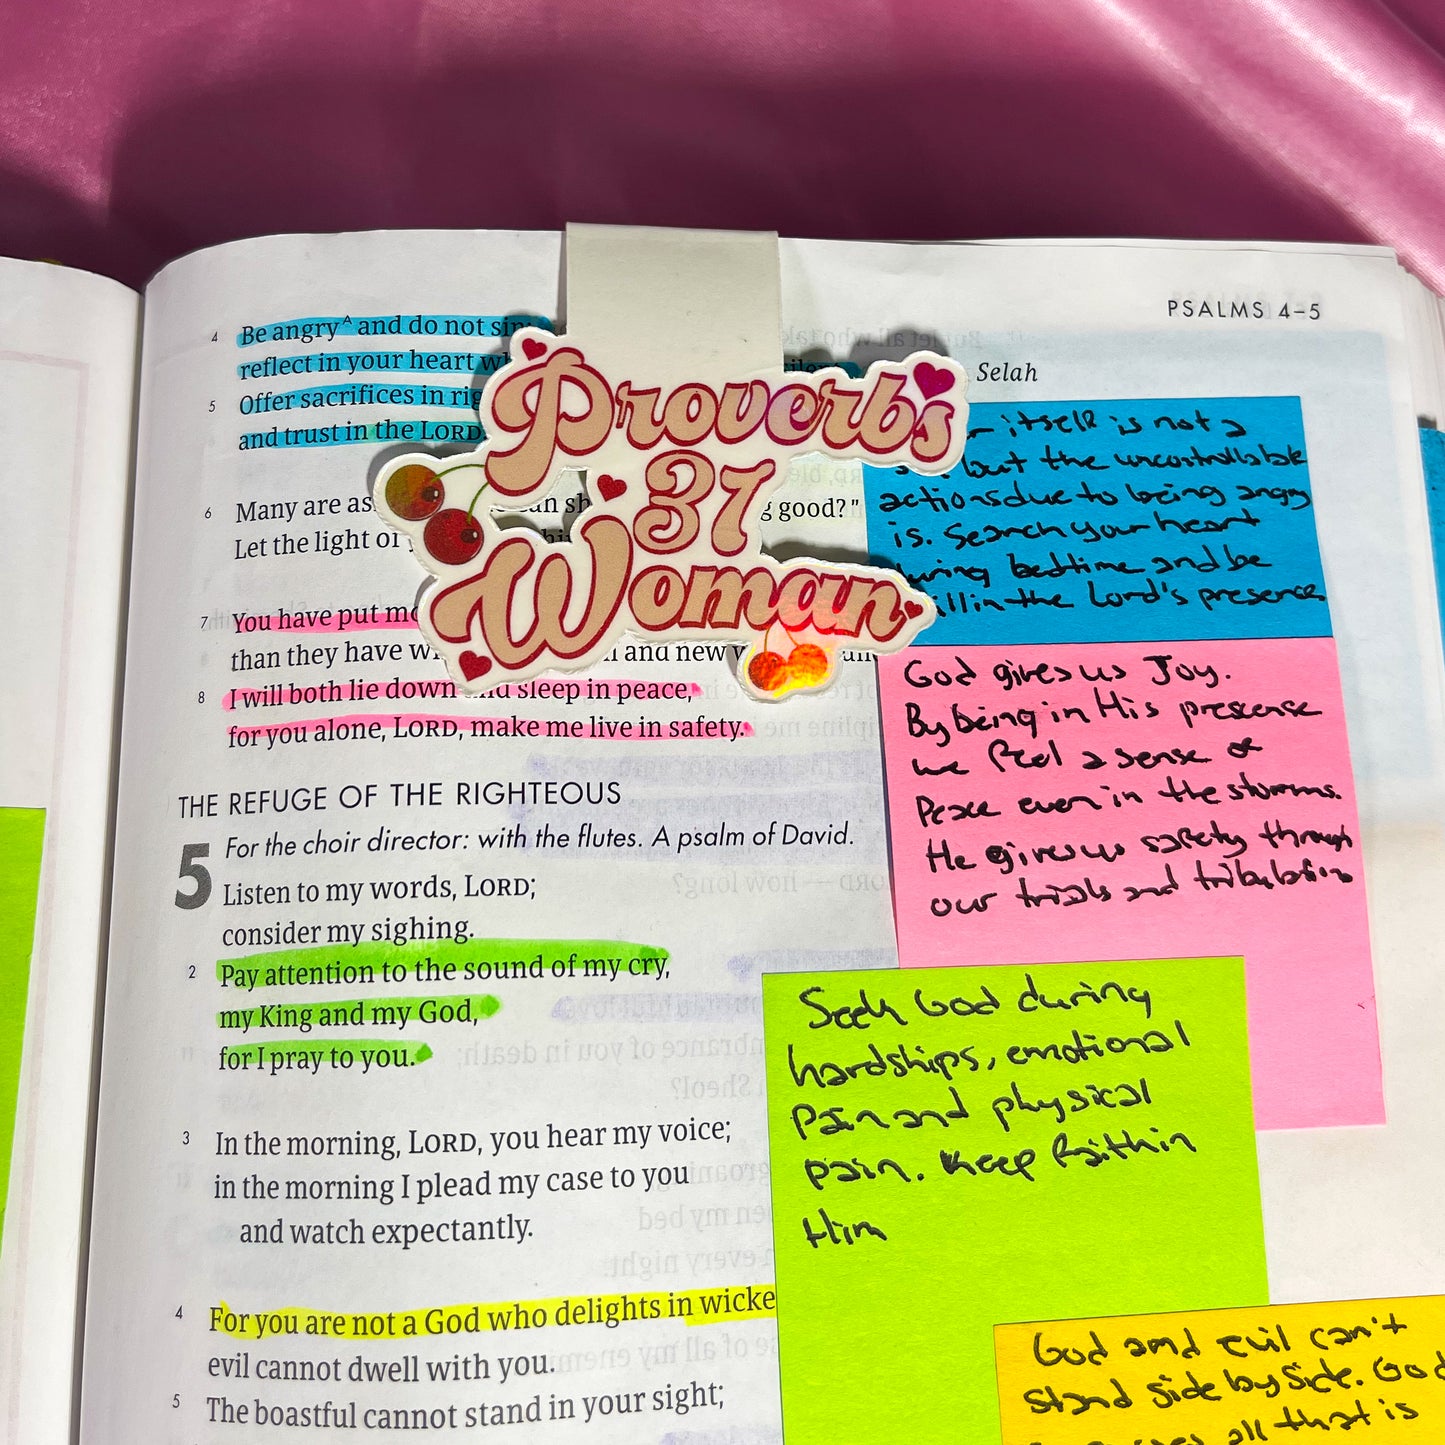 PSALMS 4–5
4 Be angry^A and do not sin
reflect in your heart
Selah
5 Offer sacrifices in
and trust in the LORD.
6 Many are
good?"
Let the light of
7 You have put
than they have
and new
8 I will both lie down and sleep in peace,
for you alone, LORD, make me live in safety.
Proverbs
31
Woman
THE REFUGE OF THE RIGHTEOUS
5 For the choir director: with the flutes. A psalm of David.
Listen to my words, LORD;
consider my sighing.
2 Pay attention to the sound of my cry,
my King and my God,
for I pray to you.
3 In the morning, LORD, you hear my voice;
in the morning I plead my case to you
and watch expectantly.
4 For you are not a God who delights in
evil cannot dwell with you.
5 The boastful cannot stand in your sight;
itself is not a
but the uncontrollable
actions due to being angry
is. Search your heart
during bedtime and be
in the Lord's presence
God gives us Joy.
By being in His presense
we feel a sense of
Peace even in the storms.
He gives us safety through
our trials and
Seek God during
hardships, emotional
Pain and physical
pain. Keep faith in
Him
God and evil can't
stand side by side. God
all that is